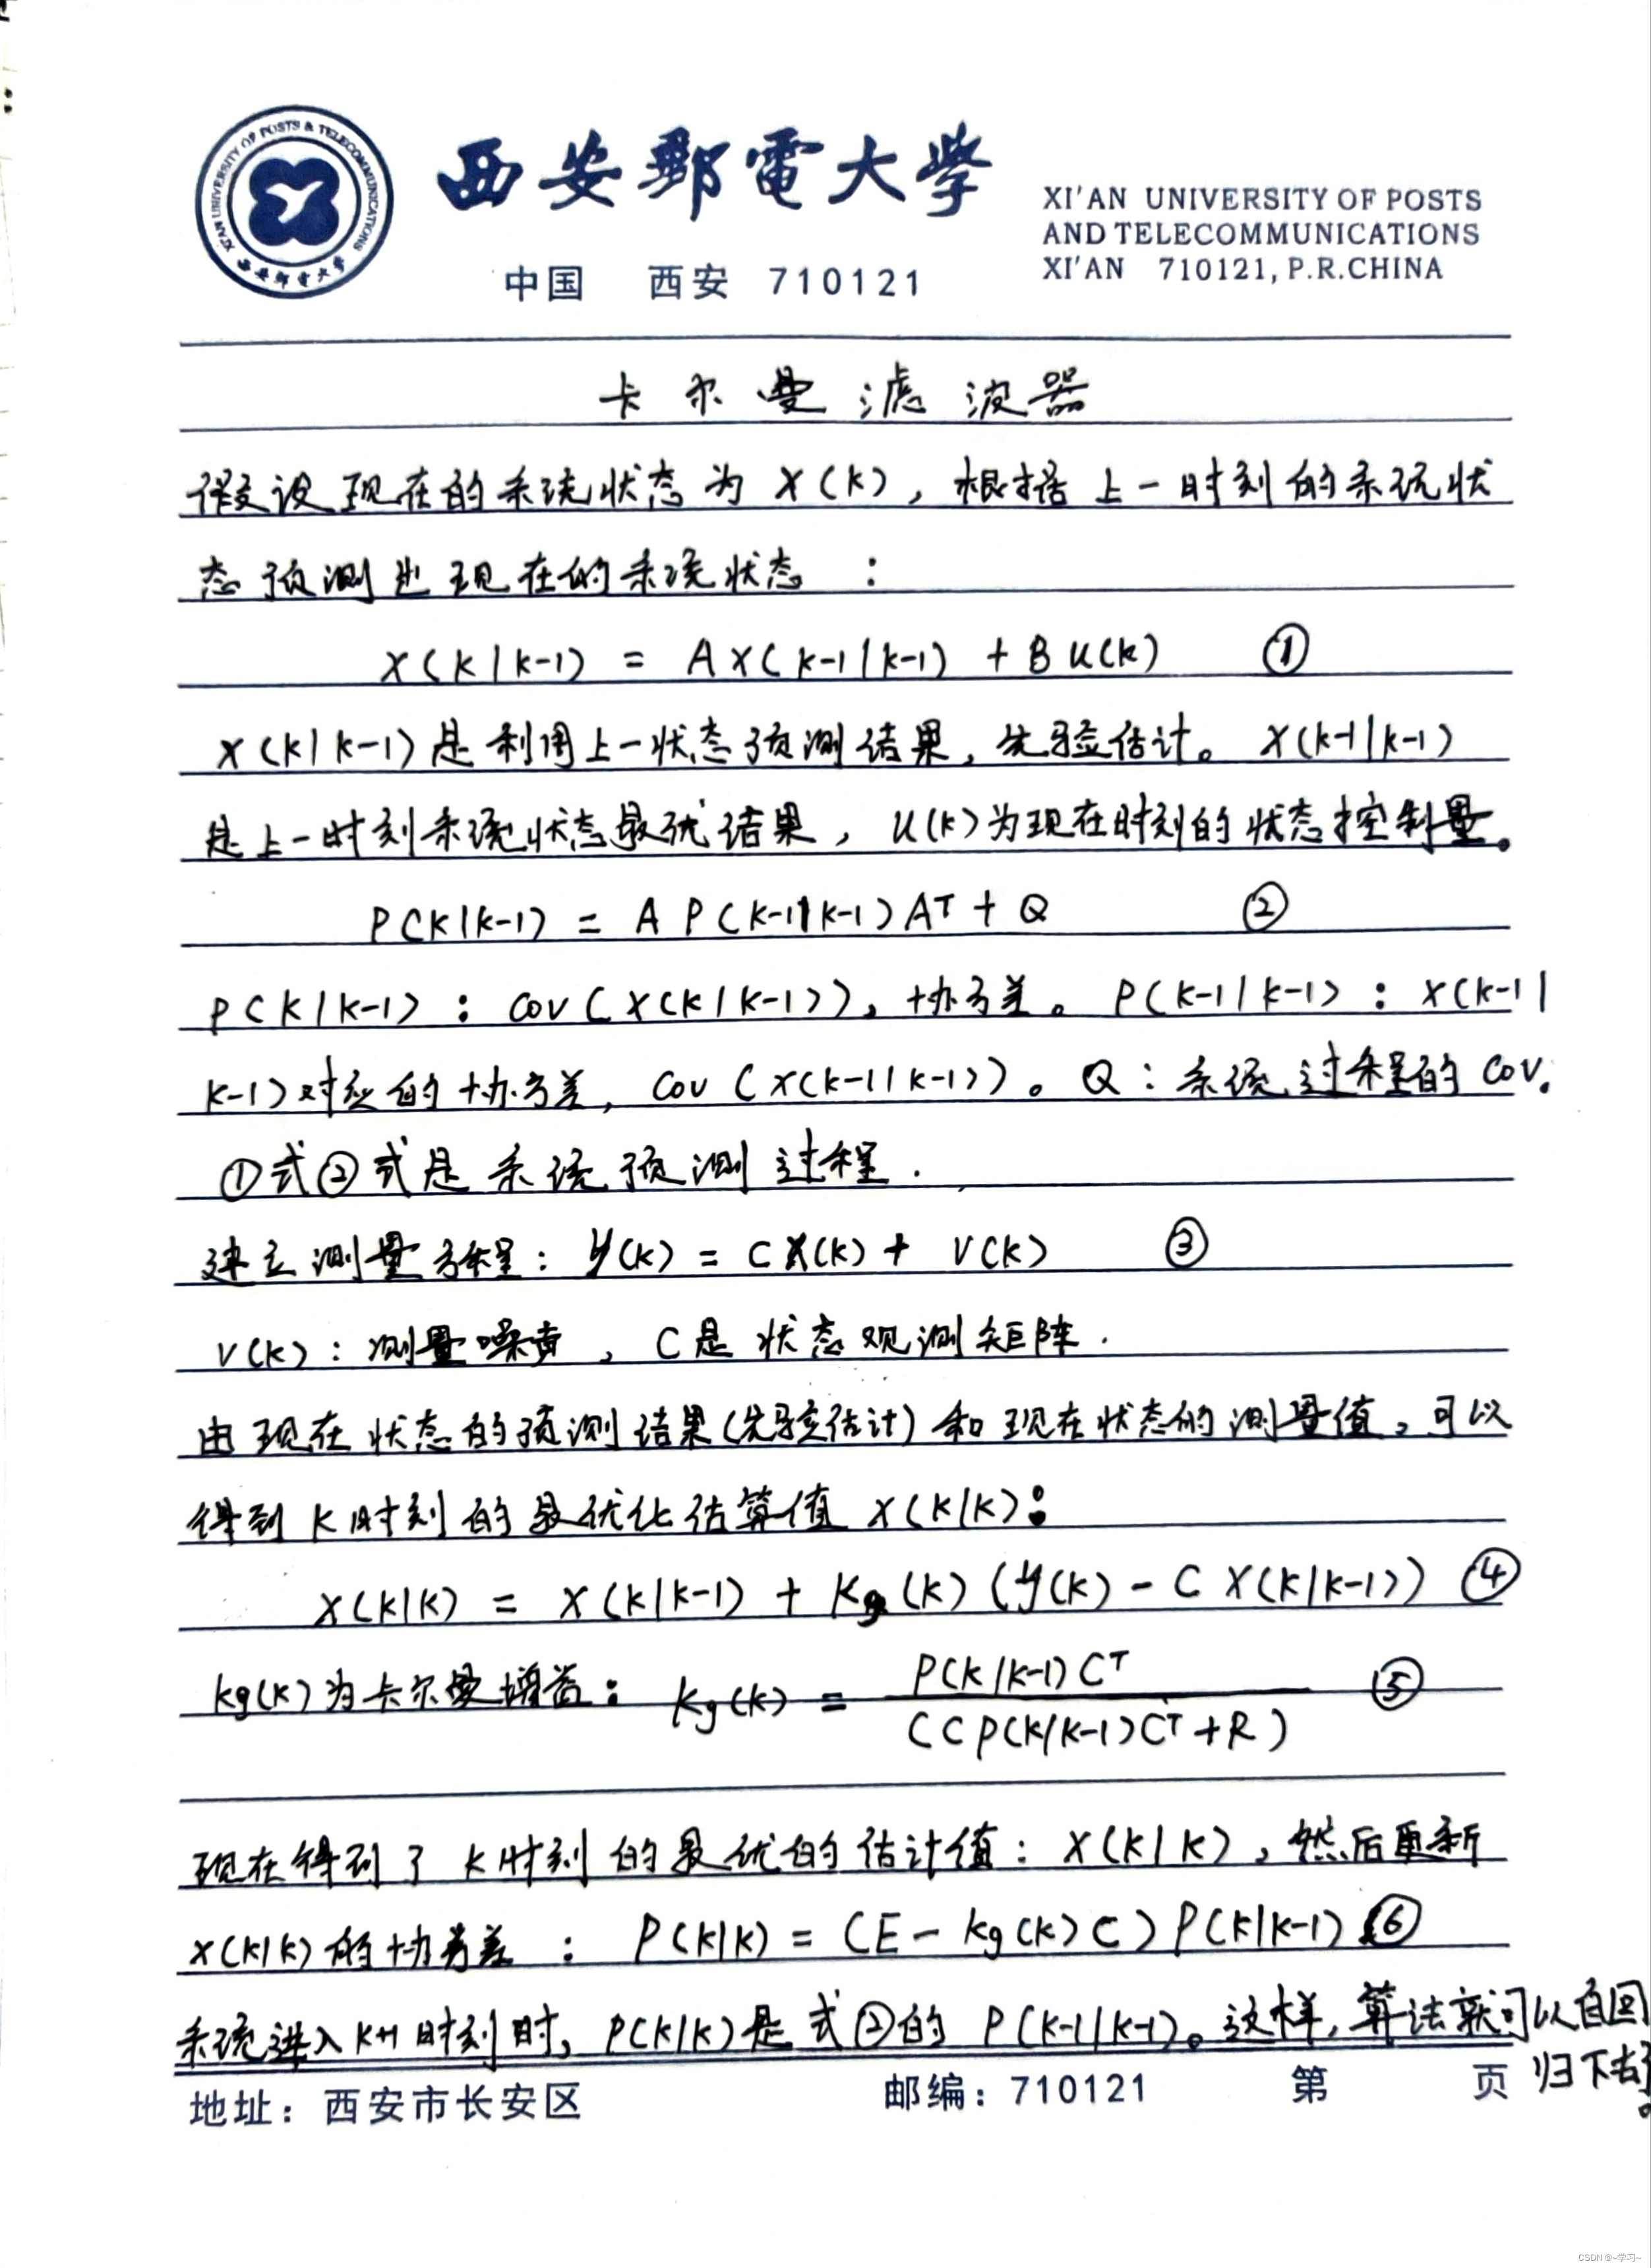 XI'AN UNIVERSITY OF POSTS & TELECOMMUNICATIONS
西安郵電大学
西安郵電大學
XI'AN UNIVERSITY OF POSTS
AND TELECOMMUNICATIONS
XI'AN 710121, P.R.CHINA
中国 西安 710121
卡尔曼滤波器
假设现在的系统状态为 X(k), 根据上一时刻的系统状
态预测出现在的系统状态:
X(k|k-1) = AX(k-1|k-1) + BU(k) ①
X(k|k-1)是利用上一状态预测结果,先验估计。X(k-1|k-1)
是上一时刻系统状态最优结果, U(k)为现在时刻的状态控制量。
P(k|k-1) = A P(k-1|k-1)Aᵀ + Q ②
P(k|k-1): Cov(X(k|k-1)), 协方差。P(k-1|k-1): X(k-1|
k-1)对应的协方差, Cov(X(k-1|k-1))。Q: 系统过程的Cov.
①式②式是系统预测过程.
建立测量方程: y(k) = CX(k) + V(k) ③
V(k): 测量噪声, C是状态观测矩阵.
由现在状态的预测结果(先验估计)和现在状态的测量值,可以
得到k时刻的最优化估算值X(k|k):
X(k|k) = X(k|k-1) + Kg(k)(y(k) - C X(k|k-1)) ④
kg(k)为卡尔曼增益: Kg(k) = P(k|k-1)Cᵀ / (CP(k|k-1)Cᵀ+R) ⑤
现在得到了k时刻的最优的估计值: X(k|k), 然后更新
X(k|k)的协方差: P(k|k) = (E - kg(k)C)P(k|k-1) ⑥
系统进入k+1时刻时, P(k|k)是式②的P(k-1|k-1)。这样,算法就可以自回
归下去了。
地址: 西安市长安区 邮编: 710121 第 页
CSDN @~学习~